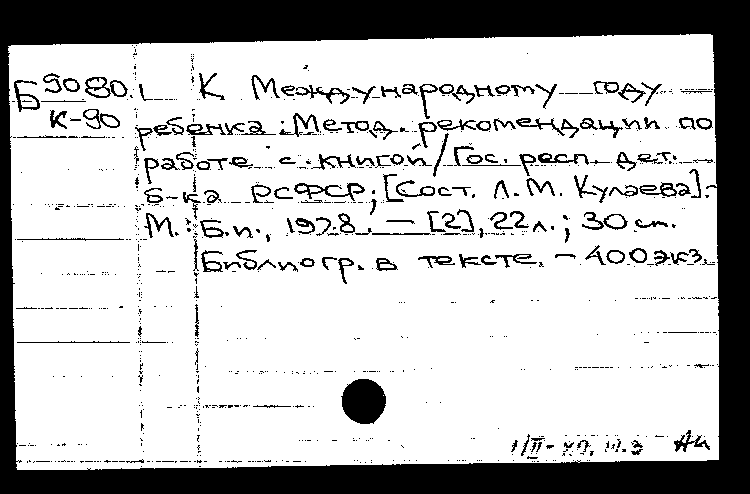 Б 9080.1 К Международному году
К-90 ребенка: Метод. рекомендации по
работе с книгой / Гос. респ. дет.
б-ка РСФСР; [Сост. Л. М. Кулаева].-
М.: Б.и., 1978. — [2], 22 л.; 30 см.
Библиогр. в тексте. - 400 экз.